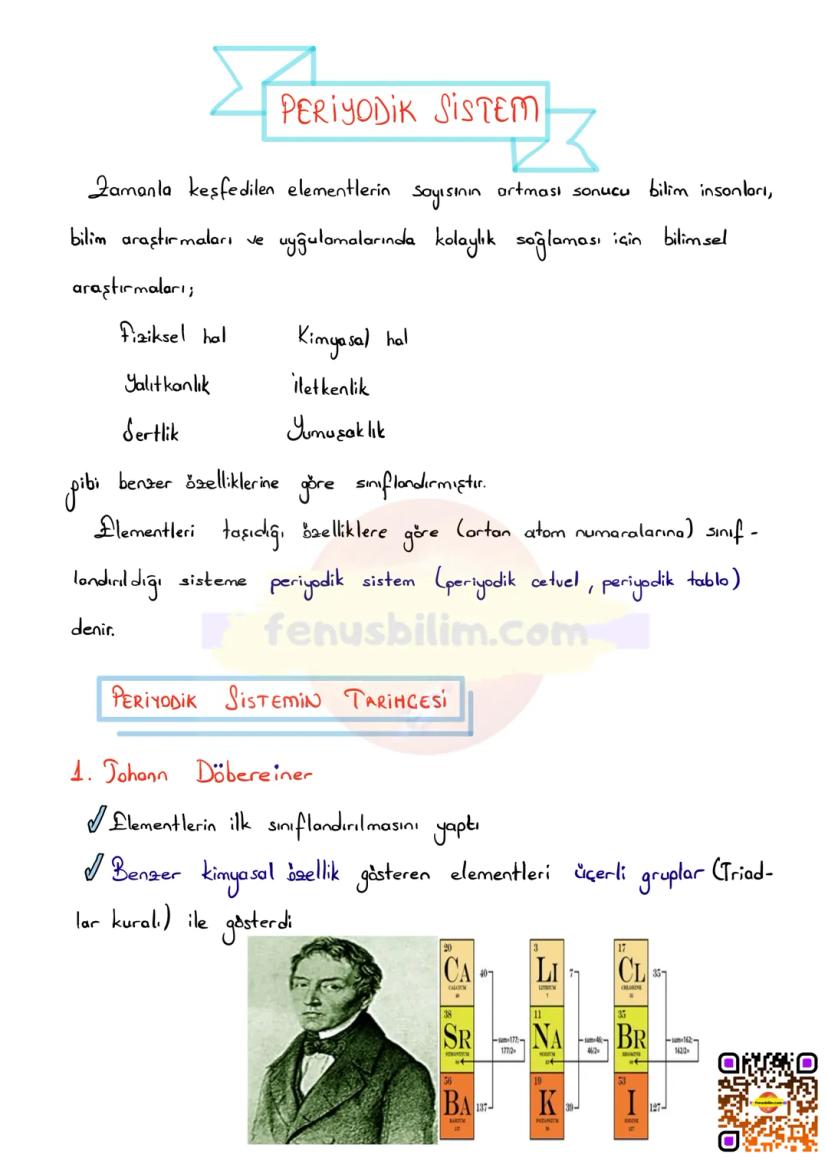 PERİYODİK SİSTEM
Zamanla keşfedilen elementlerin sayısının artması sonucu bilim insanları,
bilim araştırmaları ve uyğulamalarında kolaylık sağlaması için bilimsel
araştırmaları;
Fiziksel hal Kimyasal hal
Yalıtkanlık İletkenlik
Sertlik Yumuşaklık
gibi benzer özelliklerine göre sınıflandırmıştır.
Elementleri taşıdığı özelliklere göre (artan atom numaralarına) sınıf-
landırıldığı sisteme periyodik sistem (periyodik cetvel, periyodik tablo)
denir.
fenusbilim.com
PERİYODİK SİSTEMİN TARİHÇESİ
1. Johann Döbereiner
Elementlerin ilk sınıflandırılmasını yaptı
Benzer kimyasal özellik gösteren elementleri üçerli gruplar (Triad-
lar kuralı) ile gösterdi
20 3 17
CA 40 LI 7 CL 35
CALCIUM LITHIUM CHLORINE
40 7 35
38 11 35
SR sum=177; NA sum=46; BR sum=162;
177/2= 46/2= 162/2=
STRONTIUM SODIUM BROMINE
56 19 53
BA 137 K 39 I 127
BARIUM POTASSIUM IODINE
137 39 127
fenusbilim.com